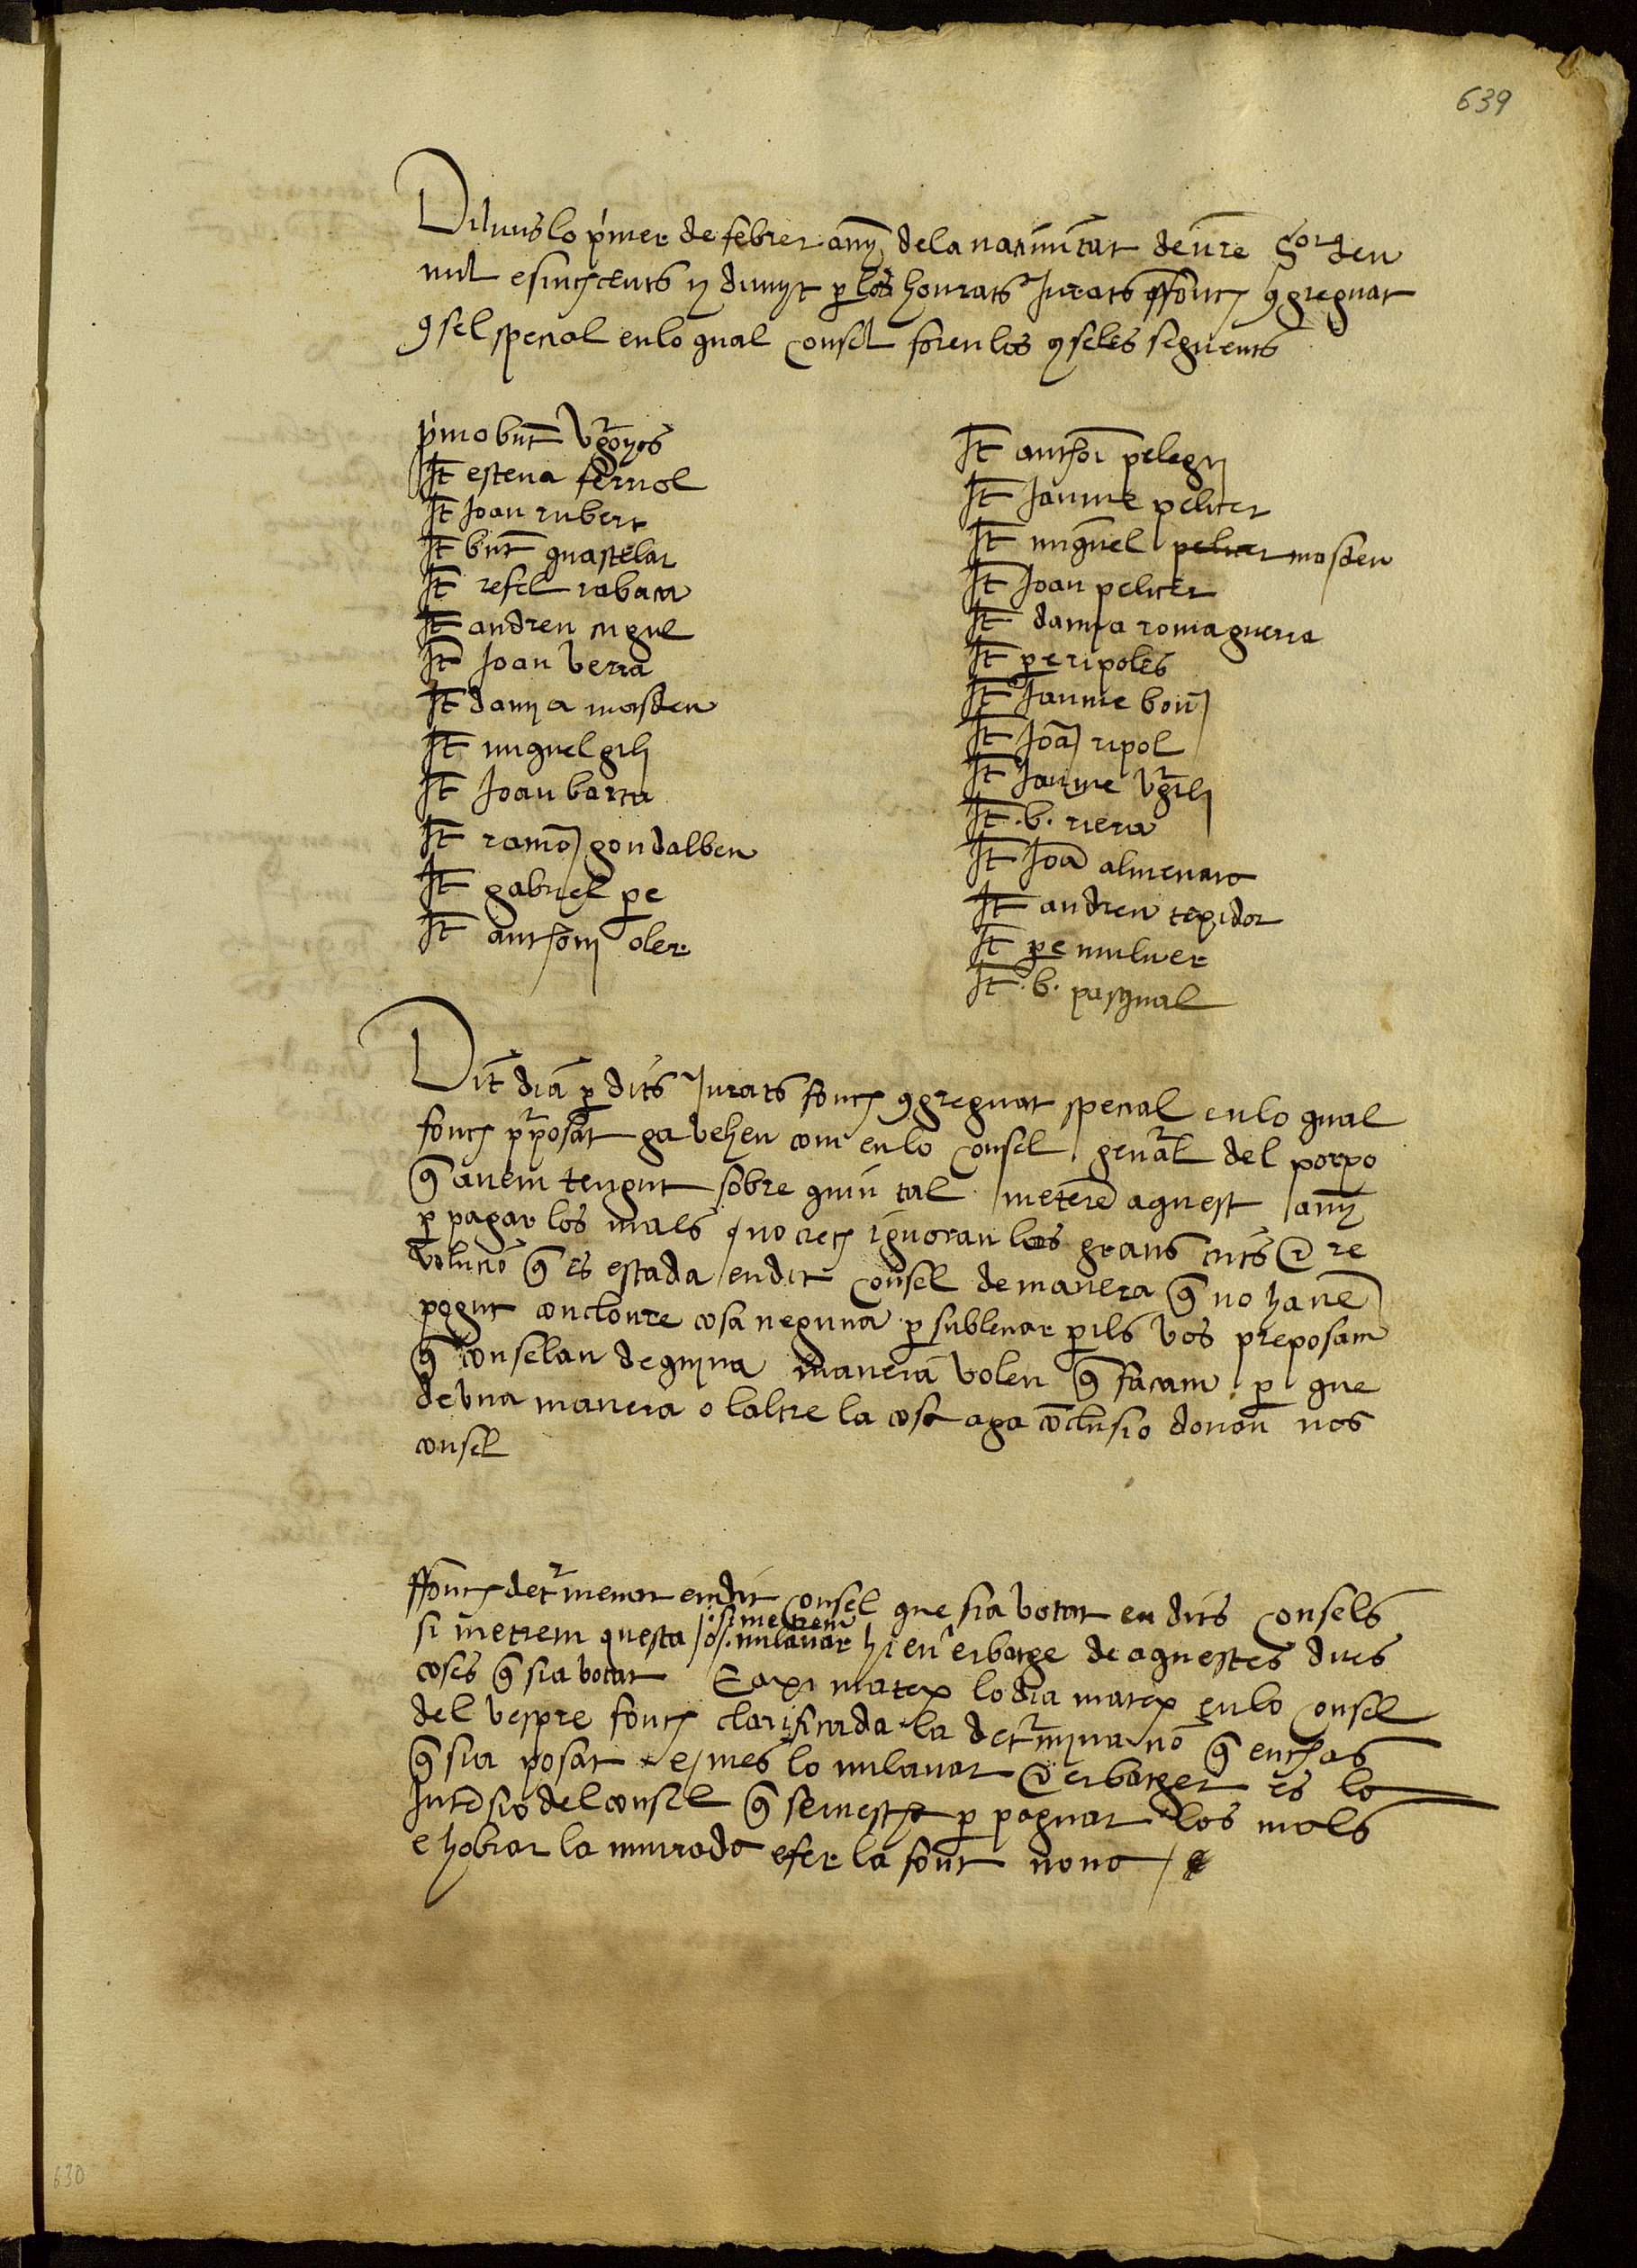 639
Diluns lo p'mer de febrer any de la nativitat de nre Sor deu
mil e sinch cents y divuyt p los honrats Jurats ffonch 9greguat
9sel special en lo qual consel foren los 9seles seguents
p'mo bnt vgonyos
It esteva ferriol
It Joan rubert
It bnt guastelar
It refel rabaca
It andreu cugul
It Joan verra
It damya masdeu
It miguel gili
It Joan barca
It ramo gondalbeu
It gabriel pe
It anthoni oler
It anthoi pelegri
It Jaume peliser
It miguel pelicer masdeu
It Joan peliser
It damya romagueria
It pe ripoles
It Jaume boui
It Joa ripol
It Jayme vgili
It .b. riera
It Joa almenara
It andreu texidor
It pe muluer
It .b. pasqual
Dit dia p dits Jurats fonch 9greguat special en lo qual
fonch pposat ja vehen com en lo consel genal del porpo
q avem tengut sobre quin tal metere aquest any
p pagar los mals no crech ignoran los grans crits e re
volucio q es estada en dit consel de manera q no have
pogut concloure cosa neguna p sublevar perils vos preposam
q conselau de quyna maneria voleu q facam p que
de una maneria o laltre la cosa aga coclusio donau nos
consel
ffonch detmenat en dit consel que sia votat en dits consels
si metrem questa / o si metrem
o milanar hi en erbatge de aquestes dites
coses q sia votat E axi matex lo dia matex en lo consel
del vespre fonch clarificada la detmynacio q enthas
q sia posat e mes lo milanar e erbatger es lo
Intesio del consel q se mestha p paguar los mals
e hobrar la murrada e fer la font nova
630